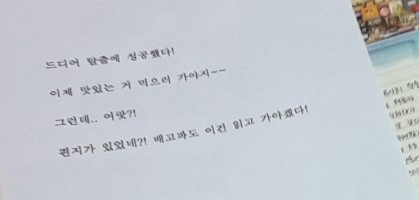 드디어 탈출에 성공했다!
이제 맛있는 거 먹으러 가야지~~
그런데.. 어맛?!
편지가 있었네?! 배고파도 이건 읽고 가야겠다!